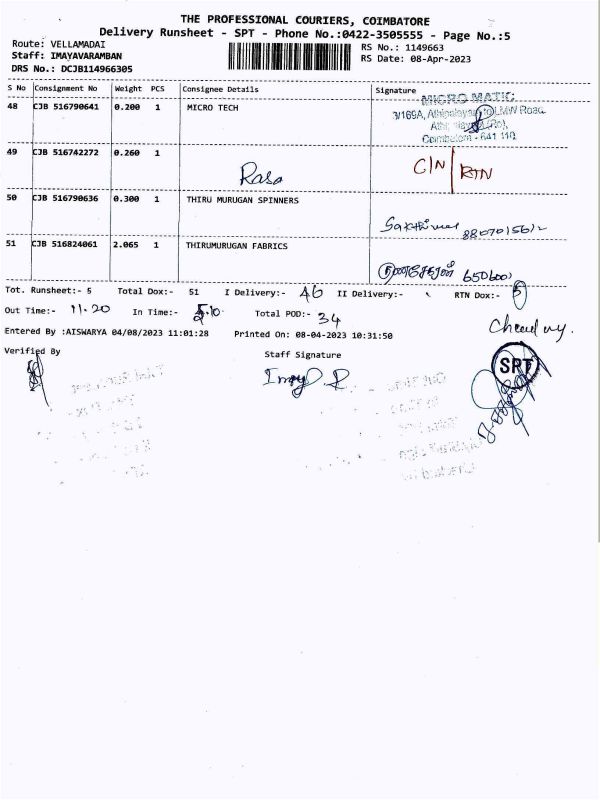 THE PROFESSIONAL COURIERS, COIMBATORE
Delivery Runsheet - SPT - Phone No.:0422-3505555 - Page No.:5
Route: VELLAMADAI
Staff: IMAYAVARAMBAN
DRS No.: DCJB114966305
RS No.: 1149663
RS Date: 08-Apr-2023
S No Consignment No Weight PCS Consignee Details Signature
48 CJB 516790641 0.200 1 MICRO TECH
MICRO MATIC
3/169A, LMW Road,
Coimbatore - 641 110.
49 CJB 516742272 0.260 1 Rasa C/N RTN
50 CJB 516790636 0.300 1 THIRU MURUGAN SPINNERS
51 CJB 516824061 2.065 1 THIRUMURUGAN FABRICS
Tot. Runsheet:- 5 Total Dox:- 51 I Delivery:- 46 II Delivery:- RTN Dox:- 5
Out Time:- 11.20 In Time:- 5.10 Total POD:- 34
Entered By :AISWARYA 04/08/2023 11:01:28 Printed On: 08-04-2023 10:31:50
Verified By Staff Signature
SPT